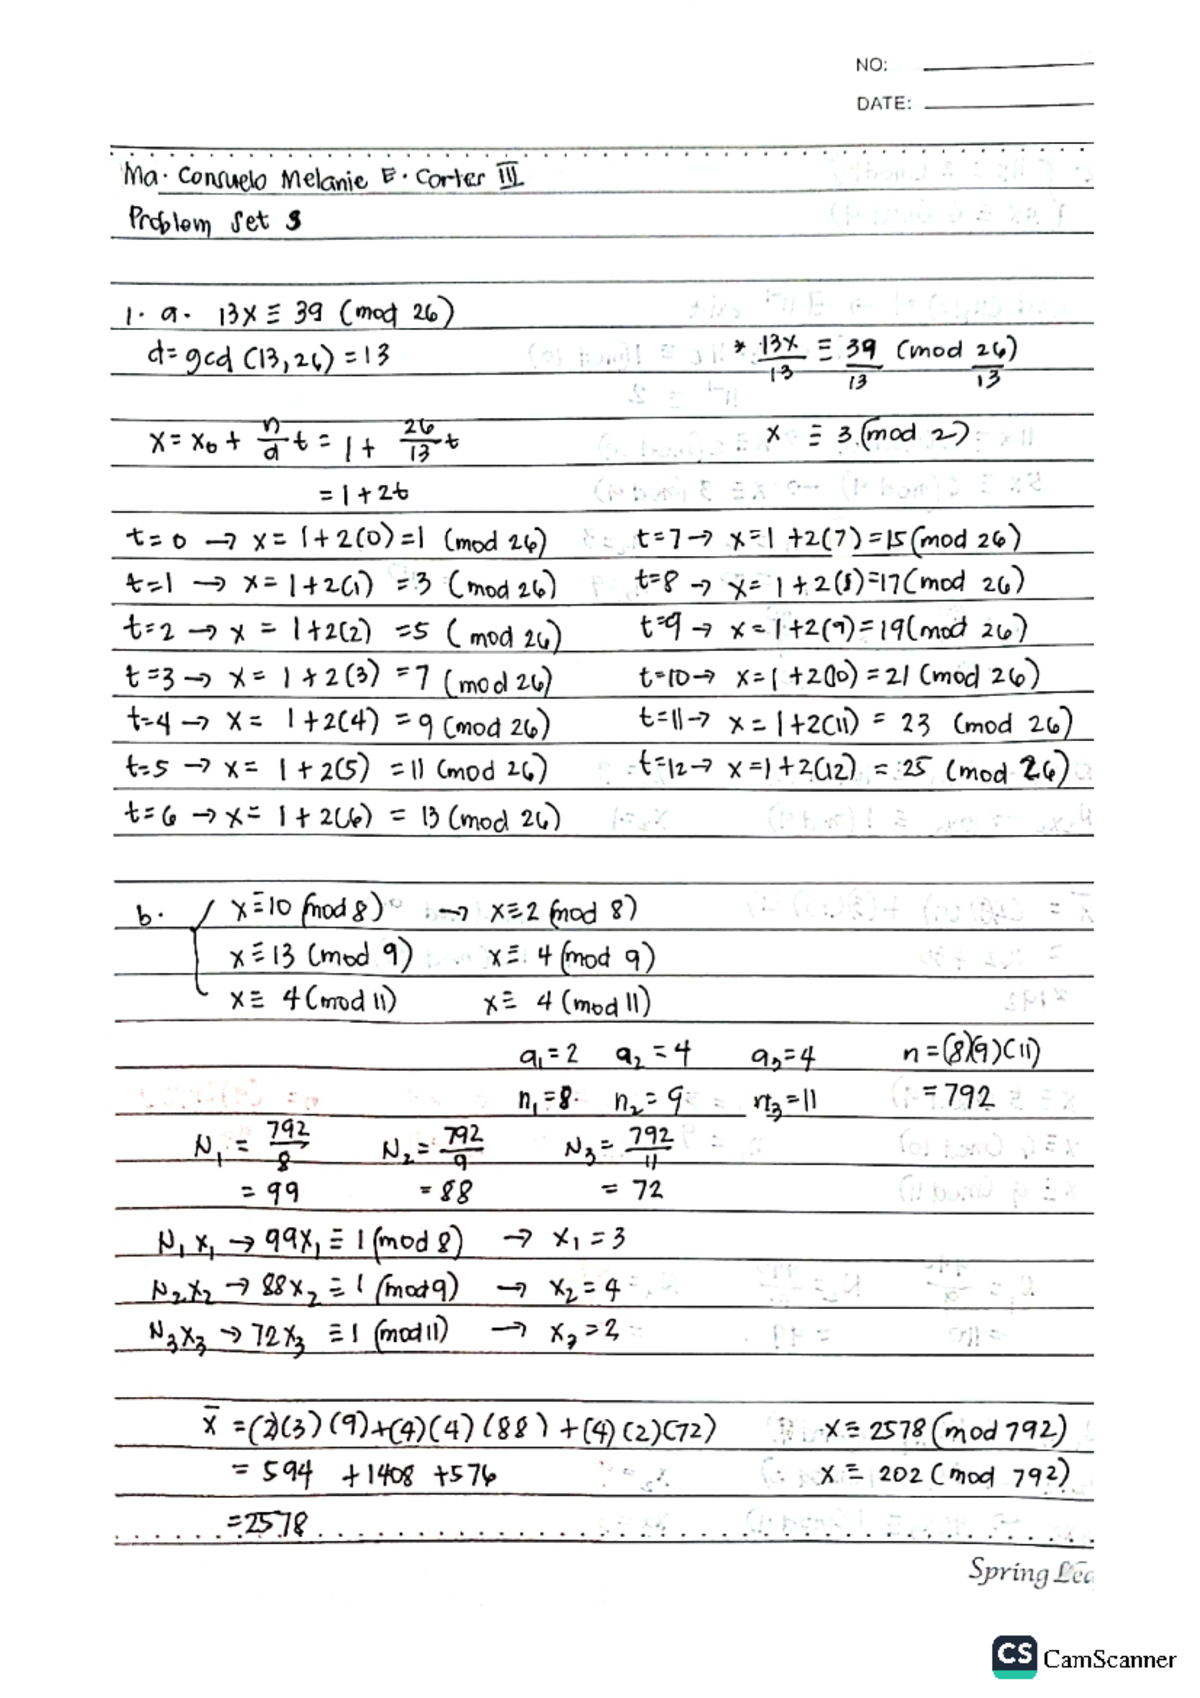 NO:
DATE:
Ma. Consuelo Melanie E. Corter III
Problem Set 3
1. a. 13x ≡ 39 (mod 26)
d = gcd (13, 26) = 13
* 13x/13 ≡ 39/13 (mod 26/13)
x = x₀ + n/d t = 1 + 26/13 t
x ≡ 3 (mod 2)
= 1 + 2t
t = 0 → x = 1 + 2(0) = 1 (mod 26)
t = 7 → x = 1 + 2(7) = 15 (mod 26)
t = 1 → x = 1 + 2(1) = 3 (mod 26)
t = 8 → x = 1 + 2(8) = 17 (mod 26)
t = 2 → x = 1 + 2(2) = 5 (mod 26)
t = 9 → x = 1 + 2(9) = 19 (mod 26)
t = 3 → x = 1 + 2(3) = 7 (mod 26)
t = 10 → x = 1 + 2(10) = 21 (mod 26)
t = 4 → x = 1 + 2(4) = 9 (mod 26)
t = 11 → x = 1 + 2(11) = 23 (mod 26)
t = 5 → x = 1 + 2(5) = 11 (mod 26)
t = 12 → x = 1 + 2(12) = 25 (mod 26)
t = 6 → x = 1 + 2(6) = 13 (mod 26)
b. x ≡ 10 (mod 8) → x ≡ 2 (mod 8)
x ≡ 13 (mod 9) x ≡ 4 (mod 9)
x ≡ 4 (mod 11) x ≡ 4 (mod 11)
a₁ = 2 a₂ = 4 a₃ = 4 n = (8)(9)(11)
n₁ = 8 n₂ = 9 n₃ = 11 = 792
N₁ = 792/8 N₂ = 792/9 N₃ = 792/11
= 99 = 88 = 72
N₁x₁ → 99x₁ ≡ 1 (mod 8) → x₁ = 3
N₂x₂ → 88x₂ ≡ 1 (mod 9) → x₂ = 4
N₃x₃ → 72x₃ ≡ 1 (mod 11) → x₃ = 2
x̄ = (2)(3)(9) + (4)(4)(88) + (4)(2)(72) x ≡ 2578 (mod 792)
= 594 + 1408 + 576 x ≡ 202 (mod 792)
= 2578
Spring Lea
CS CamScanner